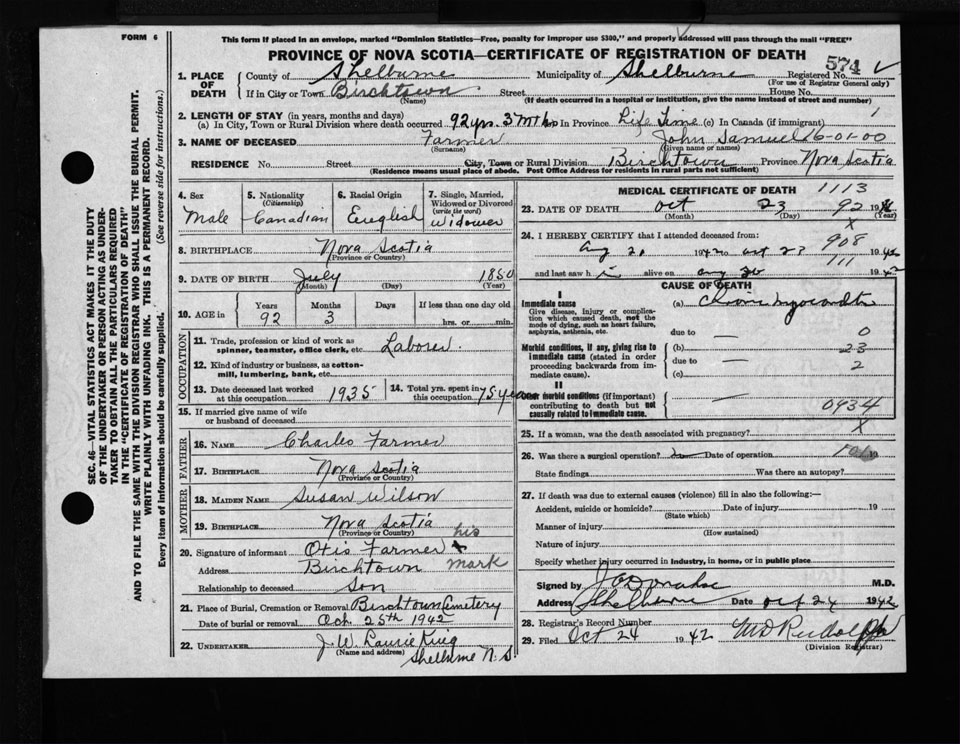 FORM 6
This form if placed in an envelope, marked "Dominion Statistics—Free, penalty for improper use $300," and properly addressed will pass through the mail "FREE"
PROVINCE OF NOVA SCOTIA—CERTIFICATE OF REGISTRATION OF DEATH
574
1. PLACE OF DEATH County of Shelburne Municipality of Shelburne Registered No.
(For use of Registrar General only)
If in City or Town Birchtown Street House No.
(Name) (If death occurred in a hospital or institution, give the name instead of street and number)
2. LENGTH OF STAY (in years, months and days)
(a) In City, Town or Rural Division where death occurred 92 yrs. 3 Mths In Province Life Time (c) In Canada (if immigrant)
3. NAME OF DECEASED Farmer John Samuel 6-01-00
(Surname) (Given name or names)
RESIDENCE No. Street City, Town or Rural Division Birchtown Province Nova Scotia
(Residence means usual place of abode. Post Office Address for residents in rural parts not sufficient)
4. Sex Male
5. Nationality (Citizenship) Canadian
6. Racial Origin English
7. Single, Married, Widowed or Divorced (write the word) Widower
8. BIRTHPLACE Nova Scotia
(Province or Country)
9. DATE OF BIRTH July 1850
(Month) (Day) (Year)
10. AGE in Years Months Days If less than one day old
92 3 hrs. or min.
OCCUPATION
11. Trade, profession or kind of work as spinner, teamster, office clerk, etc. Laborer
12. Kind of industry or business, as cotton-mill, lumbering, bank, etc.
13. Date deceased last worked at this occupation 1935
14. Total yrs. spent in this occupation 75 years
15. If married give name of wife or husband of deceased
FATHER
16. NAME Charles Farmer
17. BIRTHPLACE Nova Scotia
(Province or Country)
MOTHER
18. MAIDEN NAME Susan Wilson
19. BIRTHPLACE Nova Scotia
(Province or Country)
20. Signature of informant Otis Farmer his X mark
Address Birchtown
Relationship to deceased Son
21. Place of Burial, Cremation or Removal Birchtown Cemetery
Date of burial or removal Oct. 25th 1942
22. UNDERTAKER J. W. Laurie King
(Name and address) Shelburne N.S
MEDICAL CERTIFICATE OF DEATH 1113
23. DATE OF DEATH Oct 23 92 19
(Month) (Day) (Year)
24. I HEREBY CERTIFY that I attended deceased from:
X
908
Aug 21 1942 to Oct 23 1942
111
and last saw h alive on Aug 26 1942
CAUSE OF DEATH
I
Immediate cause (a) Chronic myocarditis
Give disease, injury or complication which caused death, not the mode of dying, such as heart failure, asphyxia, asthenia, etc.
due to 0
Morbid conditions, if any, giving rise to immediate cause (stated in order proceeding backwards from immediate cause).
(b) 23
due to 2
(c)
II
Other morbid conditions (if important) contributing to death but not causally related to immediate cause.
0934
25. If a woman, was the death associated with pregnancy? X
26. Was there a surgical operation? Date of operation 19
State findings Was there an autopsy?
27. If death was due to external causes (violence) fill in also the following:—
Accident, suicide or homicide? Date of injury 19
(State which)
Manner of injury
(How sustained)
Nature of injury
Specify whether injury occurred in industry, in home, or in public place
Signed by M.D.
Address Shelburne Date Oct 24 1942
28. Registrar's Record Number
29. Filed Oct 24 1942 M D Rudolph
(Division Registrar)
SEC. 46—VITAL STATISTICS ACT MAKES IT THE DUTY
OF THE UNDERTAKER OR PERSON ACTING AS UNDER-
TAKER TO OBTAIN ALL THE PARTICULARS REQUIRED
IN THE "CERTIFICATE OF REGISTRATION OF DEATH"
AND TO FILE THE SAME WITH THE DIVISION REGISTRAR WHO SHALL ISSUE THE BURIAL PERMIT.
WRITE PLAINLY WITH UNFADING INK. THIS IS A PERMANENT RECORD.
Every item of information should be carefully supplied. (See reverse side for instructions.)